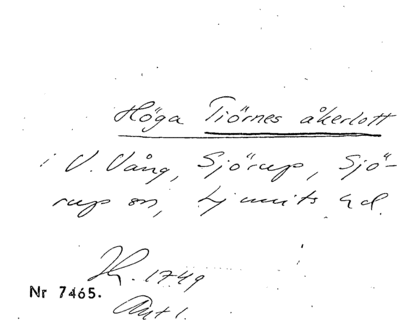 Höga Tiörnes åkerlott
i V. Vång, Sjörup, Sjö-
rup sn, Ljunits hd.
1749
Nr 7465.
Akt 1.